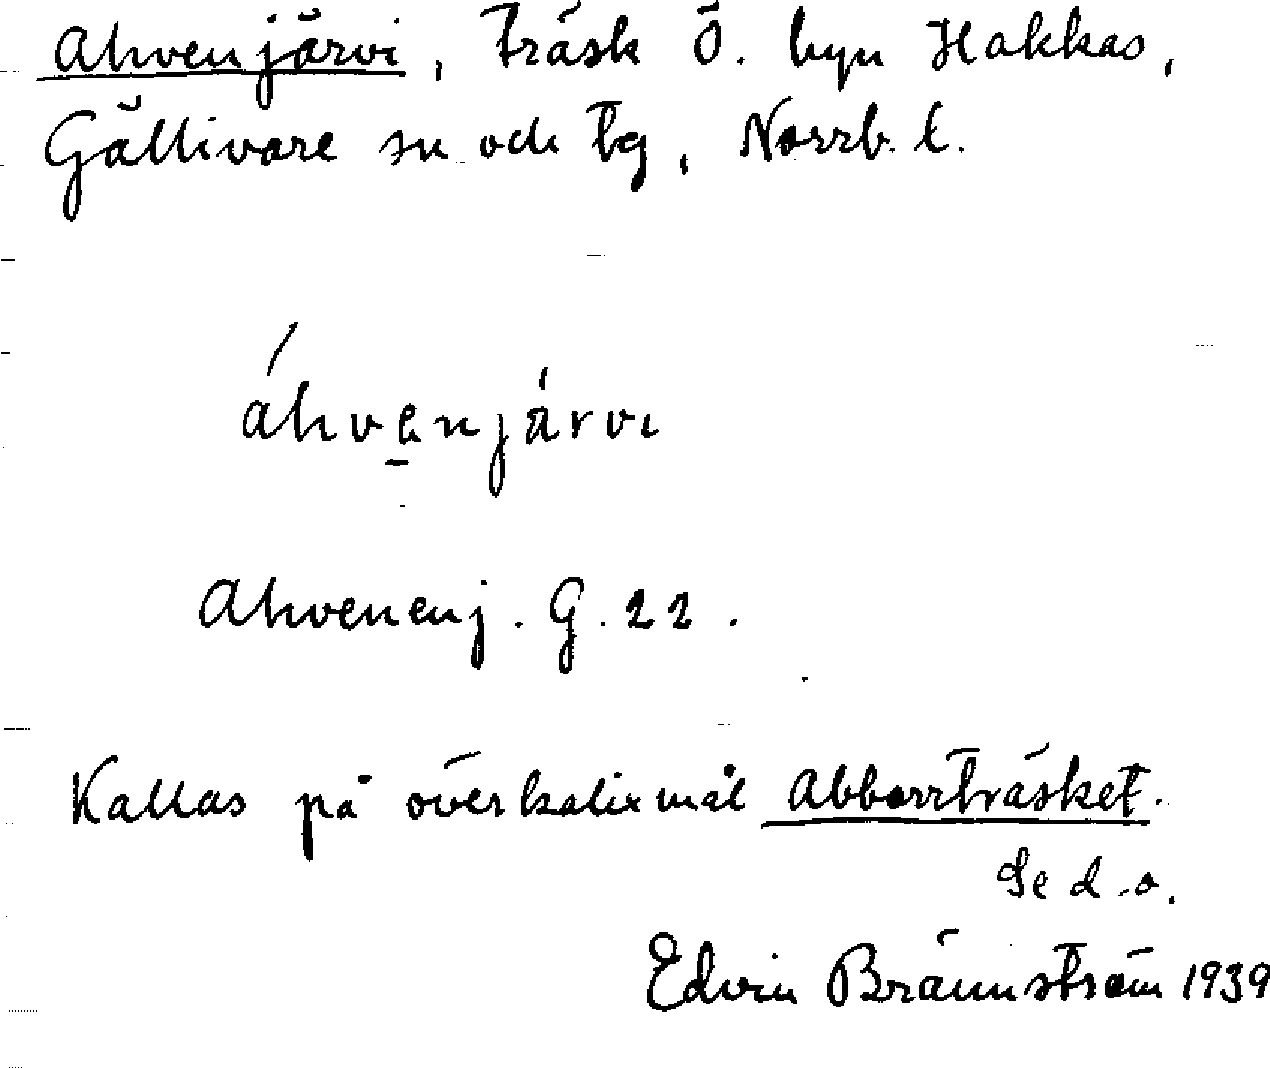 Ahvenjärvi, träsk Ö. byn Hakkas,
Gällivare sn och tg, Norrb. l.
áhvenjärvi
Ahvenenj. G. 22.
Kallas på överkalixmål Abborrträsket.
Se d. o.
Edvin Brännström 1939